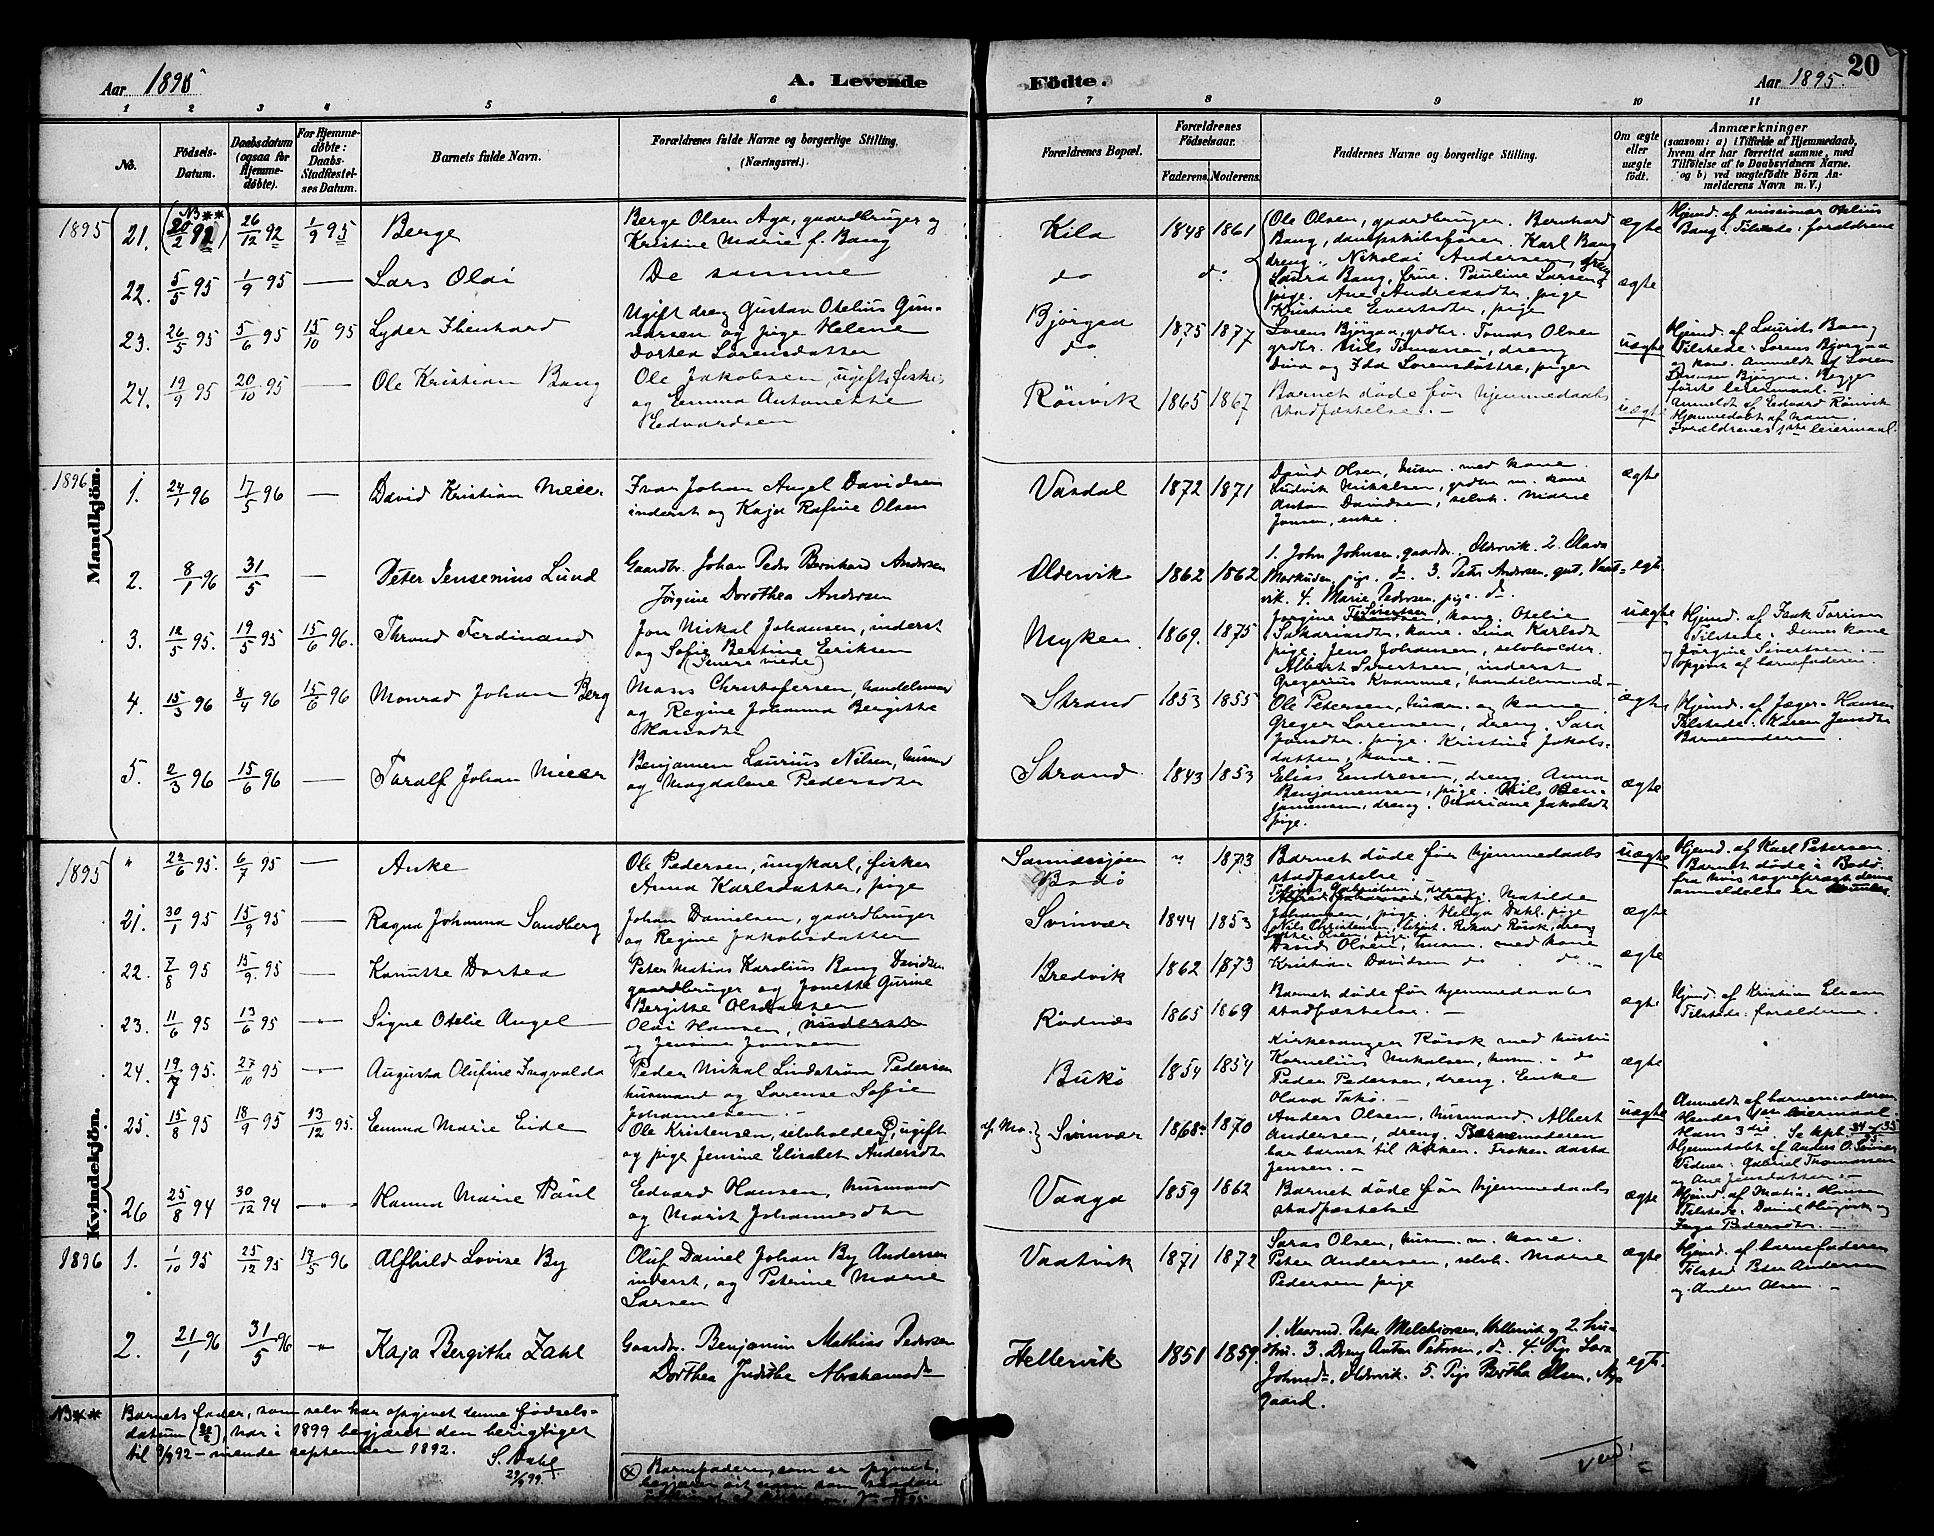 Aar 1895
A. Levende
Födte.
Aar 1895.
20
1 2 3 4 5 6 7 8 9 10 11
No.
Födsels-
Datum.
Daabsdatum
(ogsaa for
Hjemme-
döbte).
For Hjemme-
döbte:
Daabs-
Stadfæstel-
ses Datum.
Barnets fulde Navn.
Forældrenes fulde Navne og borgerlige Stilling,
(Næringsvei.)
Forældrenes Bopæl.
Forældrenes
Födselsaar.
Faderens. Moderens.
Faddernes Navne og borgerlige Stilling.
Om ægte
eller
uægte
födt.
Anmærkninger
(saasom: a) i Tilfælde af Hjemmedaab,
hvem der har forrettet samme, med
Tilföielse af to Daabsvidners Navne,
og b) ved uægtefödte Börn An-
melderens Navn m. V.)
Mandkjön.
1895
21. NB** (20/2 91) 26/12 92 1/9 95 Berge
Berge Olsen Aga, gaardbruger og
Kristine Marie f. Bang
Kila 1848 1861
Ole Olsen, gaardbruger. Bernhard
Bang, dampskibsfører. Karl Bang
dreng. Nikolai Andersen, dreng
Laura Bang, frue. Pauline Larsen,
pige. Ane Andreasdtr. pige
Kristine Evertsdtr, pige
ægte
Hjemd. af missionær Melius
Bang. Tilstede: forældrene
22. 5/5 95 1/9 95 — Lars Olai
De samme
do do
ægte
23. 26/5 95 5/6 95 15/10 95 Lyder Ibenhard
Ugift dreng Gustav Otelius Gun-
narsen og pige Helene
Dortea Lorensdatter
Bjørgaa
do. 1875 1877
Lorens Bjørgaa, grdbr. Tomas Olsen
grdbr. Nils Tomassen, dreng
Dina og Ida Lorensdøttre, piger
uægte
Hjemd. af Laurits Bang
Tilstede: Lorens Bjørgaa
og kone. Anmeldt af Loren
Bjørgaa. Begges
første leiermaal. —
24. 19/9 95 20/10 95 — Ole Kristian Bang
Ole Jakobsen, ugift, fisker
og Emma Antonette
Edvardsen
Rönvik 1865 1867
Barnet døde før hjemmedaabs
stadfæstelse. —
uægte
Anmeldt af Edvard Rönvik
Hjemmedøbt af ham.
Forældrenes 1ste leiermaal.
1896
1. 24/1 96 17/5 96 — David Kristian Meier
Ivar Johan Angel Davidsen
inderst og Kaja Rafine Olsen
Vasdal 1872 1871
David Olsen, husm. med kone.
Ludvik Mikalsen, grdbr m. kone
Anton Davidsen, selvh. Marie
Jonsen, enke.
ægte
2. 8/1 96 31/5 — Peter Jensenius Lund
Gaardbr. Johan Peder Bernhard Andersen
Jørgine Dorothea Andersen
Oldervik 1862 1862
1. John Johnsen, gaardbr., Oldervik. 2. Olava
Markusen, pige, do. 3. Peter Andersen, gut, Vaat-
vik. 4. Marie Pedersen, pige. do.
egte
3. 12/5 95. 19/5 95 15/6 96. Thrond Ferdinand
Jon Mikal Johansen, inderst
og Sofie Bertine Eriksen
(Senere viede)
Myken 1869. 1875
Jørgine Sivertsen, kone. Otelie
Sakariasdtr, kone. Lina Karlsdt
pige. Jens Johansen, selvholder.
Albert Sivertsen, inderst
uægte
Hjemd. af Isak
Tilstede: Dennes kone
og Jørgine Sivertsen. —
opgivet af barnefaderen.
4. 15/3 96 8/4 96 15/6 96 Monrad Johan Berg
Mons Christofersen, handelsmand
og Regine Johanna Bergitte
Hansdtr
Strand 1853 1855
Gregorius Kvamme, handelsmand —
Ole Petersen, husm. og kone
Greger Lorensen, dreng. Sara
Jonsdtr. pige. Kristine Jakobs-
datter, kone. —
ægte
Hjemd. af Jæger-Hansen
Tilstede: Karen Jensdtr
Barnemoderen.
5. 2/3 96 15/6 96 — Toralf Johan Meier
Benjamen Laurius Nilsen, husmd
og Magdalene Pedersdtr
Strand 1843 1853
Elias Endresen, dreng. Anna
Benjamensen, pige. Nils Ben-
jamensen, dreng. Mariane Jakobsdt
pige.
ægte
Kvindekjön.
1895
" 22/6 95. 6/7 95 — Anke
Ole Pedersen, ungkarl, fisker
Anna Karlsdatter, pige
Bodø " 1873
Barnet døde før hjemmedaabs
stadfæstelse.
uægte
Hjemd. af Karl Petersen.
Barnet døde i Bodø,
fra hvis sognepræst denne
anmeldelse er
21. 30/1 95 15/9 95 — Ragna Johanna Sandberg
Johan Danielsen, gaardbruger
og Regine Jakobsdatter
Svinvær 1844 1853
Tobias Gabrielsen, dreng
Matilde
Johansen, pige. Helga Dahl, pige
ægte
22. 7/8 95 15/9. 95 — Kanutte Dortea
Peter Matias Karolius Bang Davidsen
gaardbruger og Jonette Gurine
Bergitte Olsdatter
Bredvik 1862 1873
Nils Christensen, Rikard Røsok, dreng
Olsen, pige.
David Olsen, husm. med kone
Kristian Davidsen do. do. —
ægte
23. 11/6 95 13/6 95 — Signe Otelie Angel
Olai Hansen, inderst
og Jensine Jonsen
Rödnæs 1865 1869
Barnet døde før hjemmedaabs
stadfæstelse. —
ægte
Hjemd. af Kristian Eliasen
Tilstede: forældrene.
24. 19/7 95. 27/10 95 — Augusta Olufine Ingvalda
Peder Mikal Lindstrøm Pedersen
husmand og Lorense Sofie
Johannesen. —
Bukö 1854 1854
Kirkesanger Røsok med hustru
Kornelius Mikalsen, husm. " do
Peder Pedersen, dreng. Enke
Olava Takö. —
ægte
25. 15/8 95 18/9 95 13/12 95. Emma Marie Eide
Ole Kristensen, selvholder (x), ugift
og pige Jensine Elisabet Andersdtr
af Mo. } Svinvær 1868 1870
Anders Olsen, husmand. Albert
Andersen, dreng. Barnemoderen
bar barnet til kirken. Frøken Aasta
Jensen. —
uægte
Anmeldt af barnemoderen
Hendes 1ste leiermaal
Hans 3die.
Hjemmedøbt af Anders O. Svinvær
Vidner: Gabriel Thomassen
og Ane Jensdatter. —
26 25/8 94 30/12 94 — Hanna Marie Paul
Edvard Hansen, husmand
og Marit Johannesdtr
Vaaga 1859 1862
Barnet døde før hjemmedaabs
stadfæstelse
ægte
Hjemd. af Matias Hansen
Tilstede: Daniel og
Inga Pedersdtr. —
1896
1. 1/10 95 25/12 95 17/5 96 Alfhild Lovise By
Oluf Daniel Johan By Andersen
inderst, og Petrine Marie
Larsen
Vaatvik 1871 1872
Saras Olsen, husm. m. kone.
Peter Andersen, selvh. Marie
Pedersen pige
ægte
Hjemd. af barnefaderen
Tilsted. Peter Andersen
og Anders Olsen. —
2. 21/1 96 31/5 96 — Kaja Bergithe Zahl
Gaardbr. Benjamin Mathias Pedersen
Dorthea Judithe Abrahamsd
Hellervik 1851 1859.
1. Kaarmd. Peter Melchiorsen, Hellervik og 2. hu-
stru. 3. Dreng Anton Petersen, do. 4. Pige Sara
Johnsd., Oldervik. 5. Pige Bertha Olsen, Nyp
gaard.
egte.
NB** Barnets fader, som selv har opgivet denne fødsels-
datum (20/2), har i 1899 begjæret den berigtiget
til 9/9 92 — niende september 1892.
S. Dahl
29/9 99.
(x) Barnefaderen, som er opgivet
Vend!